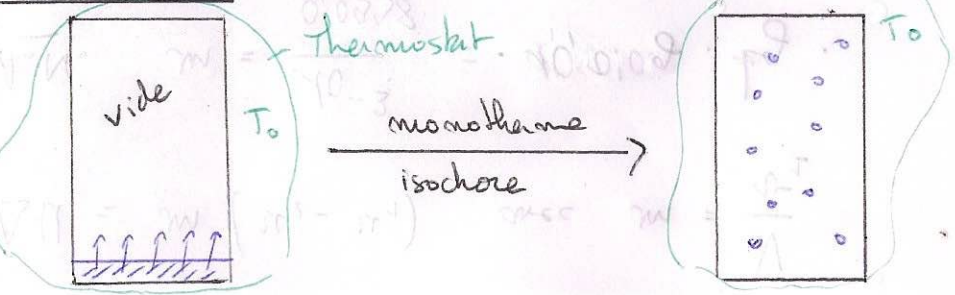 Thermostat.
vide
T₀
monotherme
isochore
T₀